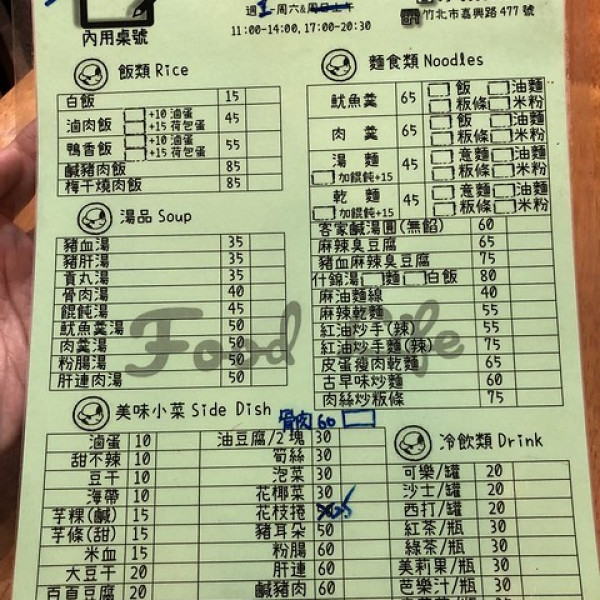 內用桌號
週1-周六&周日上午
11:00-14:00, 17:00-20:30
竹北市嘉興路477號
飯類 Rice
白飯 15
滷肉飯 +10 滷蛋 +15 荷包蛋 45
鴨香飯 +10 滷蛋 +15 荷包蛋 55
鹹豬肉飯 85
梅干燒肉飯 85
湯品 Soup
豬血湯 35
豬肝湯 35
貢丸湯 35
骨肉湯 40
餛飩湯 45
魷魚羹湯 50
肉羹湯 50
粉腸湯 50
肝連肉湯 50
麵食類 Noodles
魷魚羹 65 飯 油麵 粄條 米粉
肉羹 65 飯 油麵 粄條 米粉
湯麵 加餛飩+15 45 意麵 油麵 粄條 米粉
乾麵 加餛飩+15 45 意麵 油麵 粄條 米粉
客家鹹湯圓(無餡) 60
麻辣臭豆腐 65
豬血麻辣臭豆腐 75
什錦湯 麵 白飯 80
麻油麵線 40
麻辣乾麵 55
紅油炒手(辣) 55
紅油炒手麵(辣) 75
皮蛋瘦肉乾麵 65
古早味炒麵 60
肉絲炒粄條 75
Food Life
美味小菜 Side Dish
骨肉 60
滷蛋 10
甜不辣 10
豆干 10
海帶 10
芋粿(鹹) 15
芋條(甜) 15
米血 15
大豆干 20
百頁豆腐 20
油豆腐/2塊 30
筍絲 30
泡菜 30
花椰菜 30
花枝捲
豬耳朵 50
粉腸 60
肝連 60
鹹豬肉 60
冷飲類 Drink
可樂/罐 20
沙士/罐 20
西打/罐 20
紅茶/瓶 30
綠茶/瓶 30
美莉果/瓶 30
芭樂汁/瓶 30